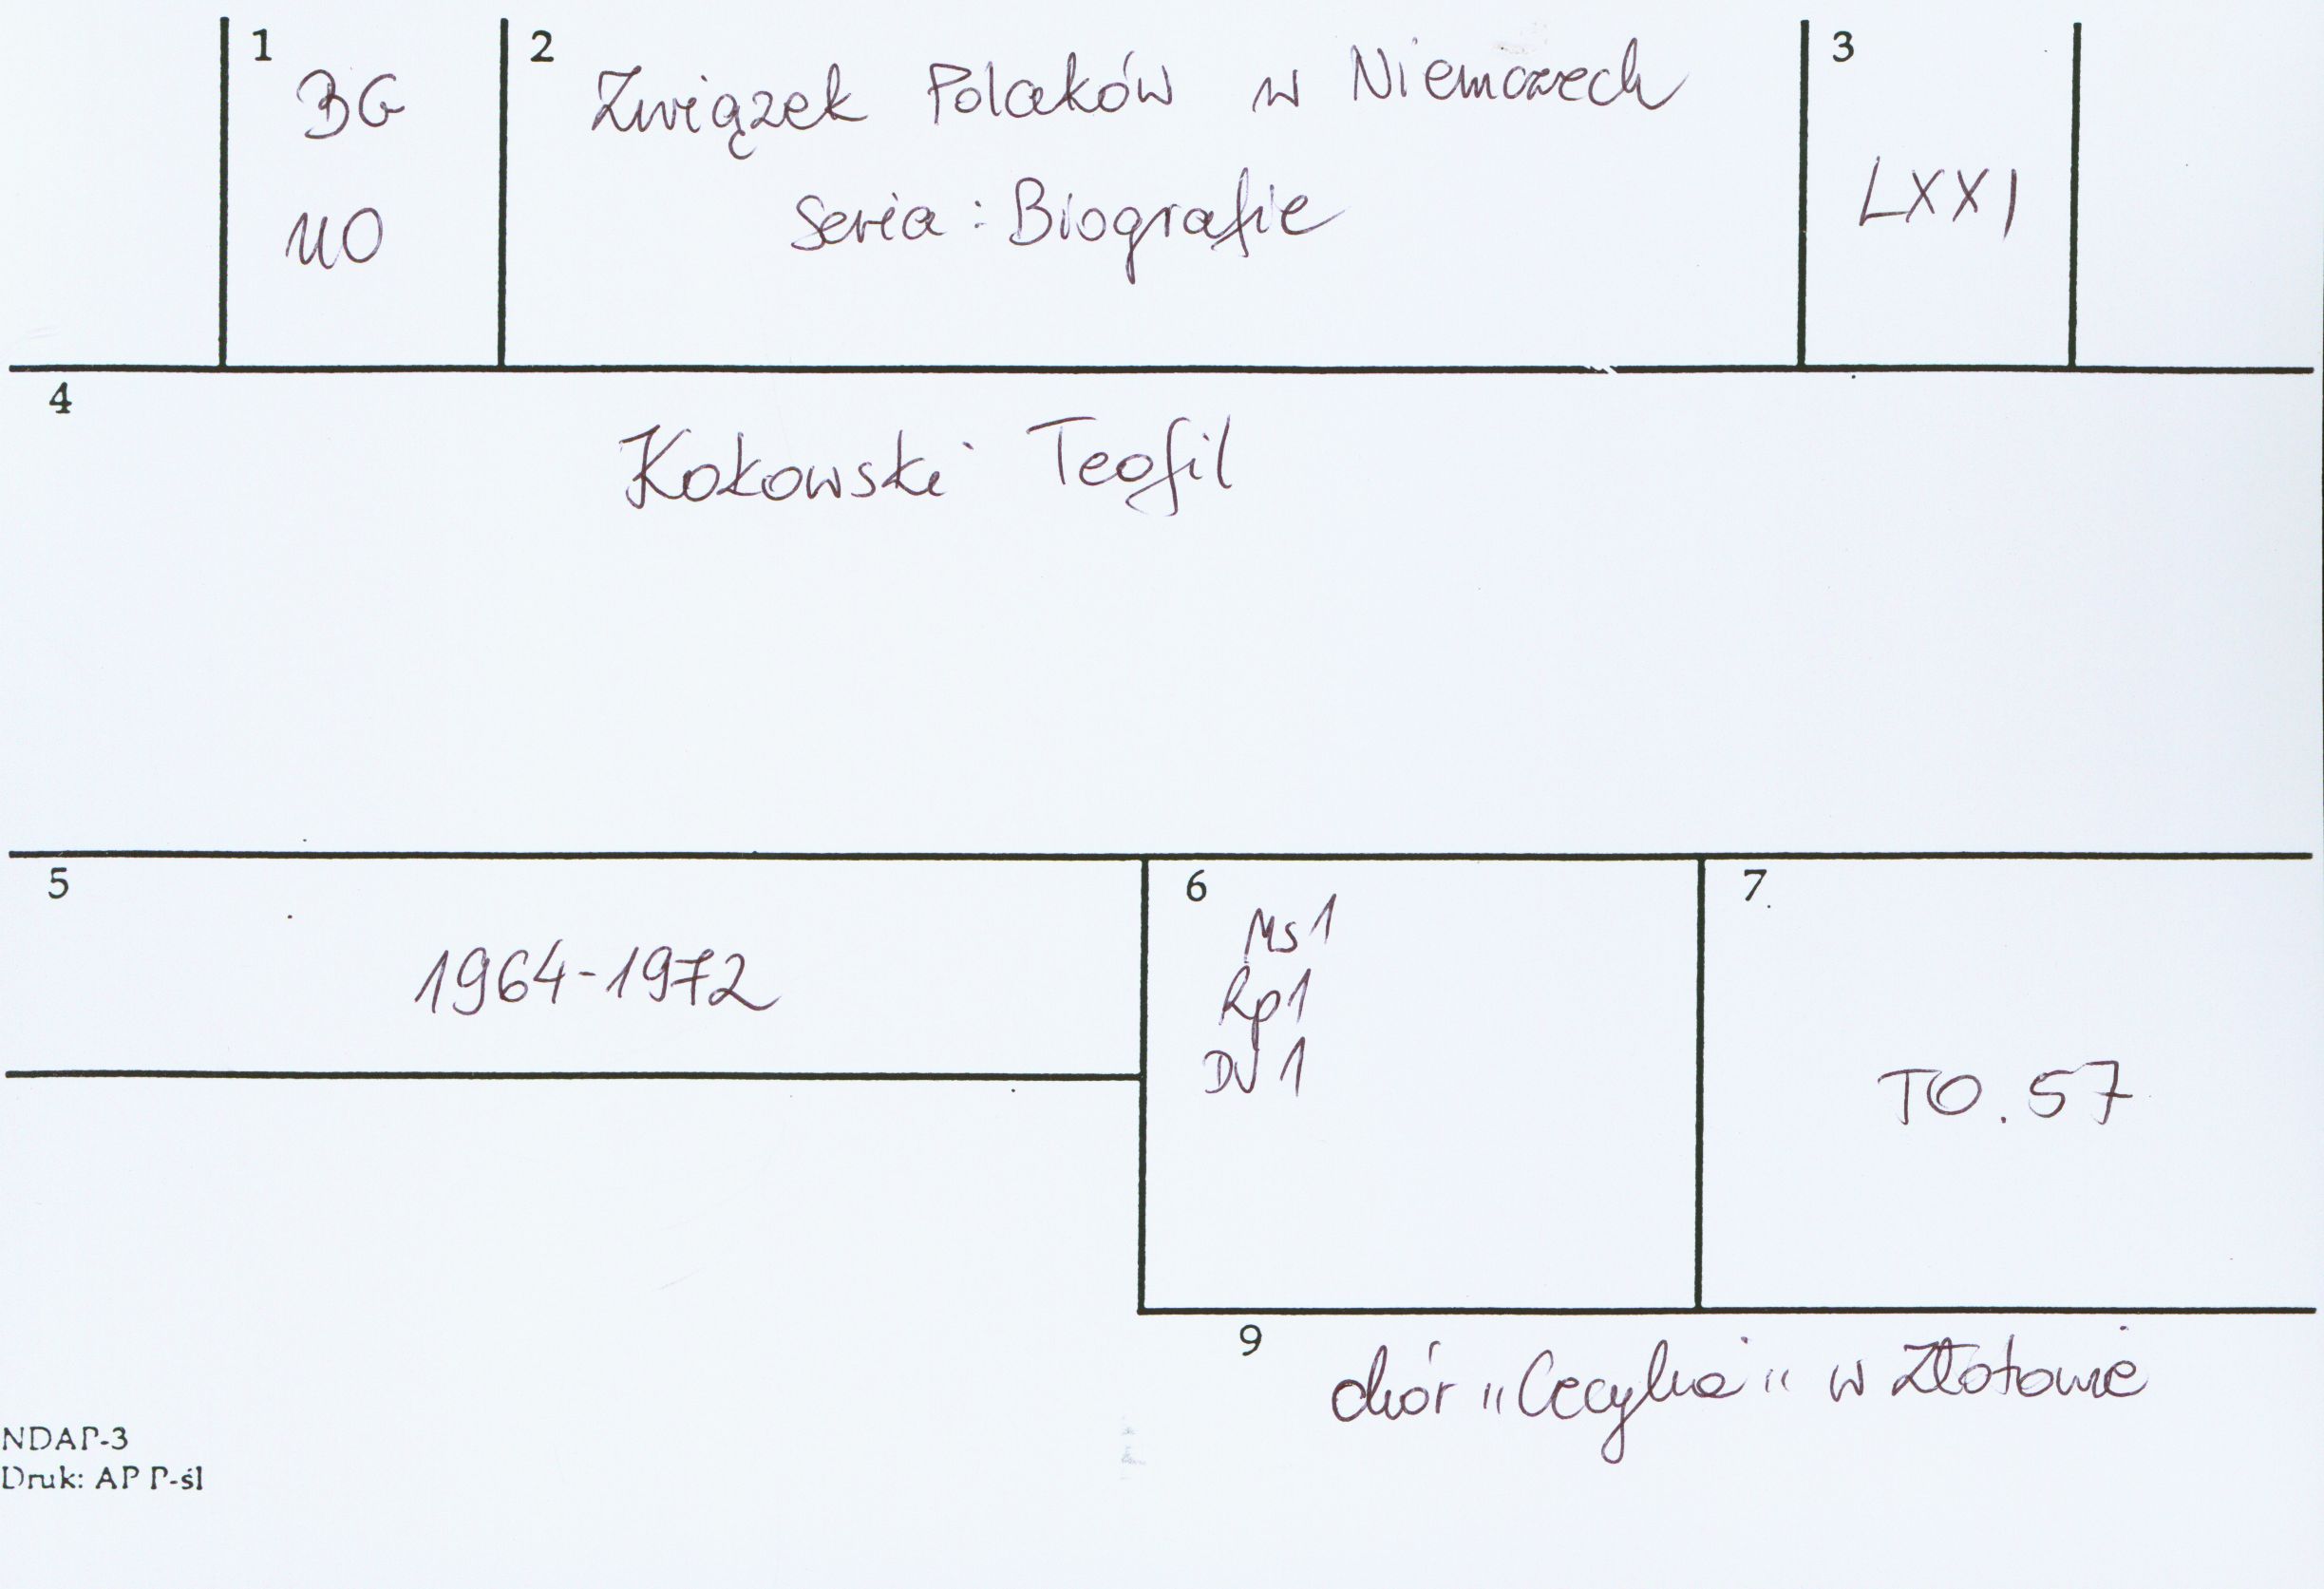 1
BG
UO
2
Związek Polaków w Niemczech
Seria: Biografie
3
LXXI
4
Kokowski Teofil
5
1964-1972
6
Ms 1
Rp 1
DV 1
7
TO. 57
9
chór "Cecylia" w Złotowie
NDAP-3
Druk: AP P-śl